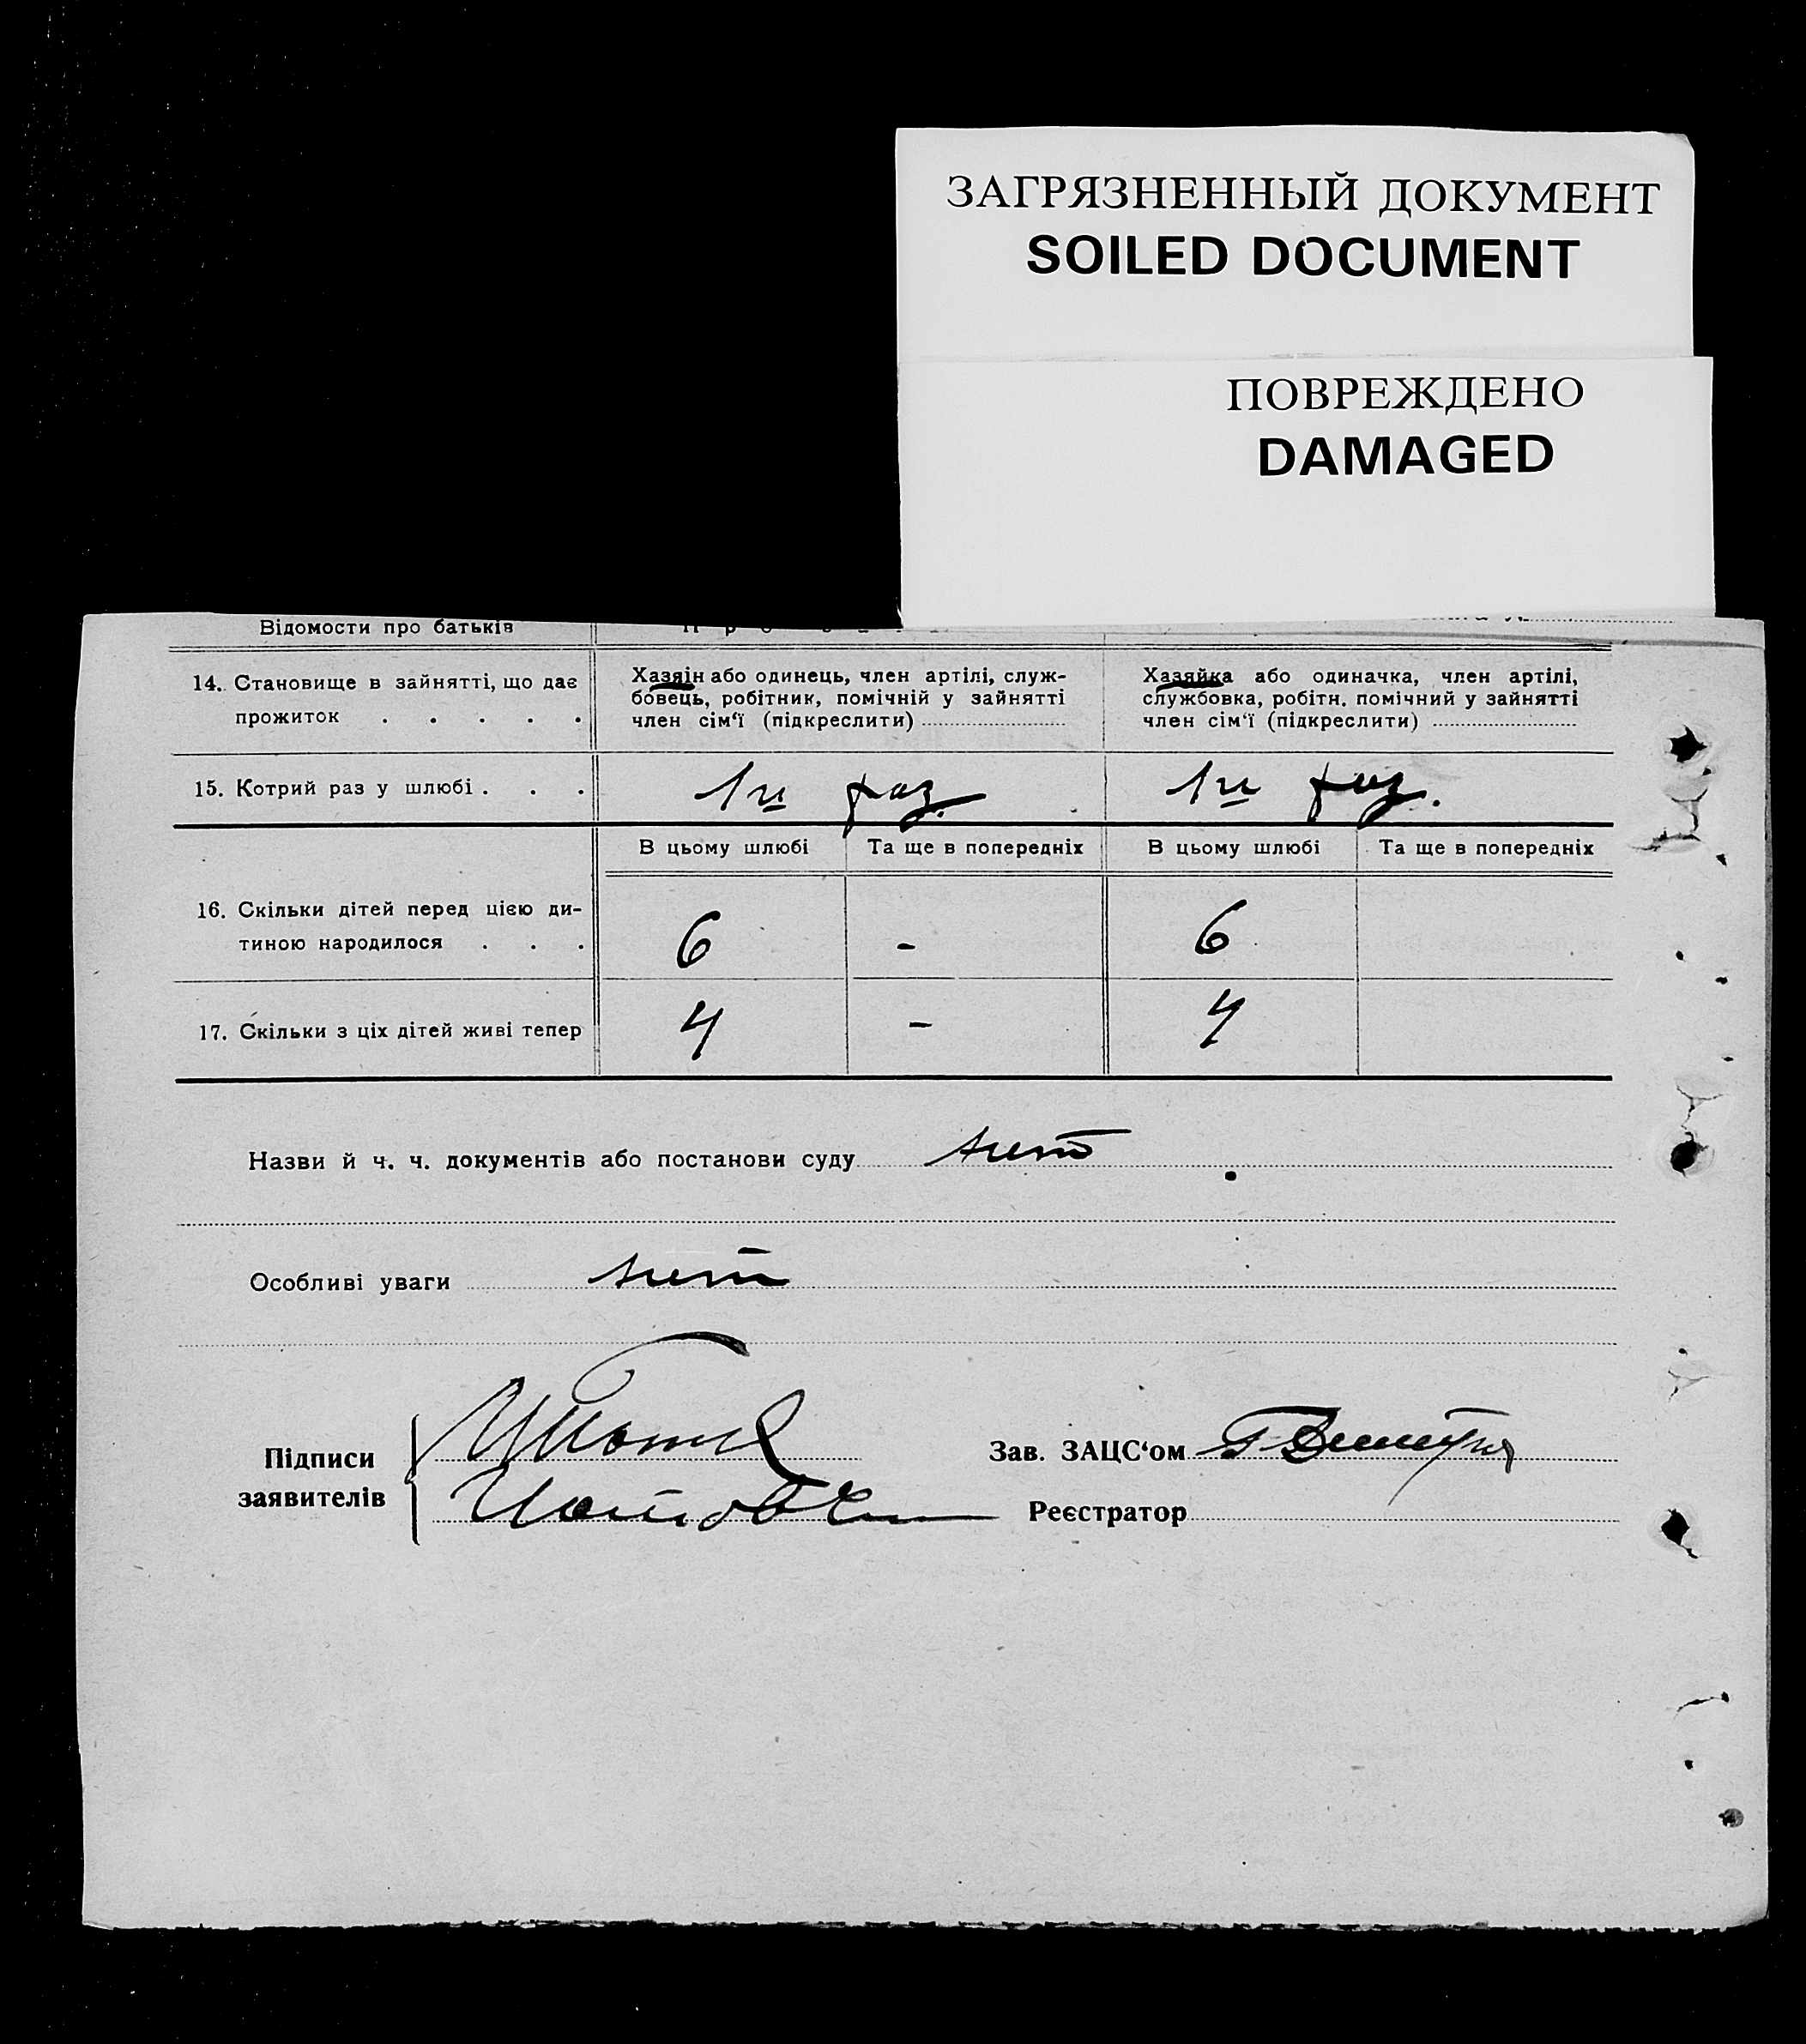 ЗАГРЯЗНЕННЫЙ ДОКУМЕНТ
SOILED DOCUMENT
ПОВРЕЖДЕНО
DAMAGED
Відомости про батьків
14. Становище в зайнятті, що дає
прожиток . . . . .
Хазяїн або одинець, член артілі, служ-
бовець, робітник, помічній у зайнятті
член сім‘ї (підкреслити)
Хазяйка або одиначка, член артілі,
службовка, робітн. помічний у зайнятті
член сім‘ї (підкреслити)
15. Котрий раз у шлюбі . . . 1й раз. 1й раз.
В цьому шлюбі Та ще в попередніх В цьому шлюбі Та ще в попередніх
16. Скільки дітей перед цією ди-
тиною народилося . . . 6 - 6
17. Скільки з ціх дітей живі тепер 4 - 4
Назви й ч. ч. документів або постанови суду нет
Особливі уваги нет
Підписи
заявителів
Зав. ЗАЦС‘ом
Реєстратор